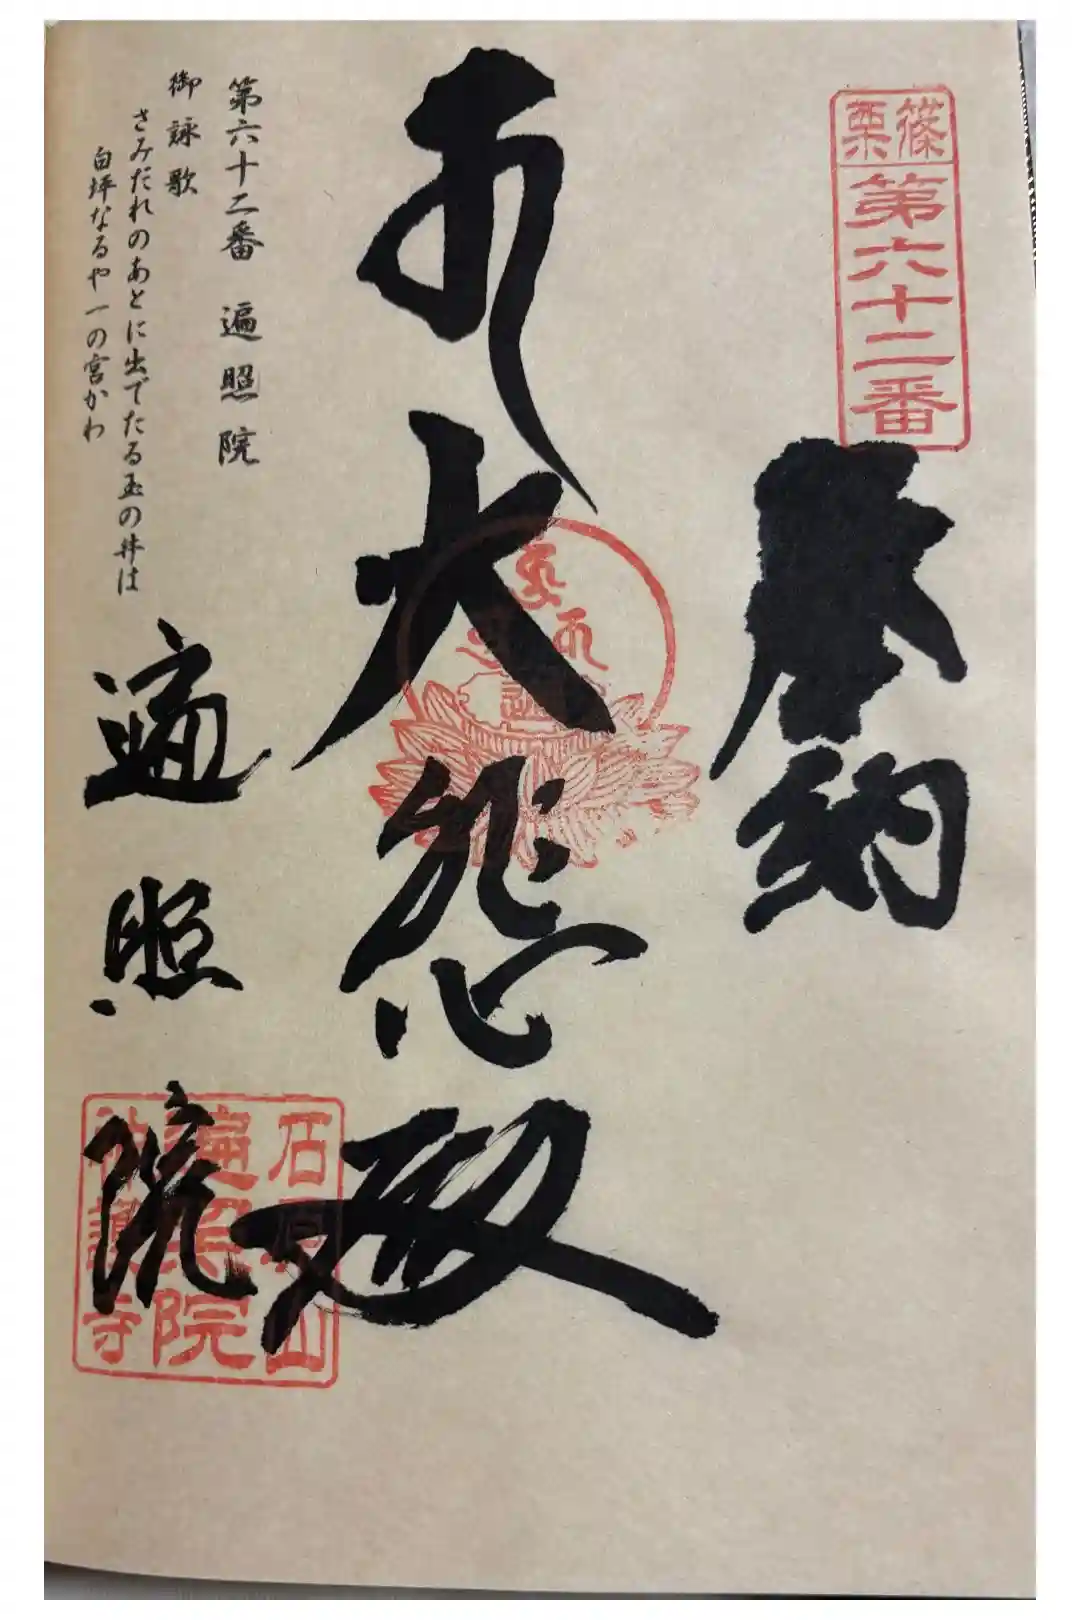 篠栗
第六十二番
奉納
大悲殿
第六十二番 遍照院
御詠歌
さみだれのあとに出でたる玉の井は
白坪なるや一の宮かわ
遍照院
石原山
遍照院
神護寺